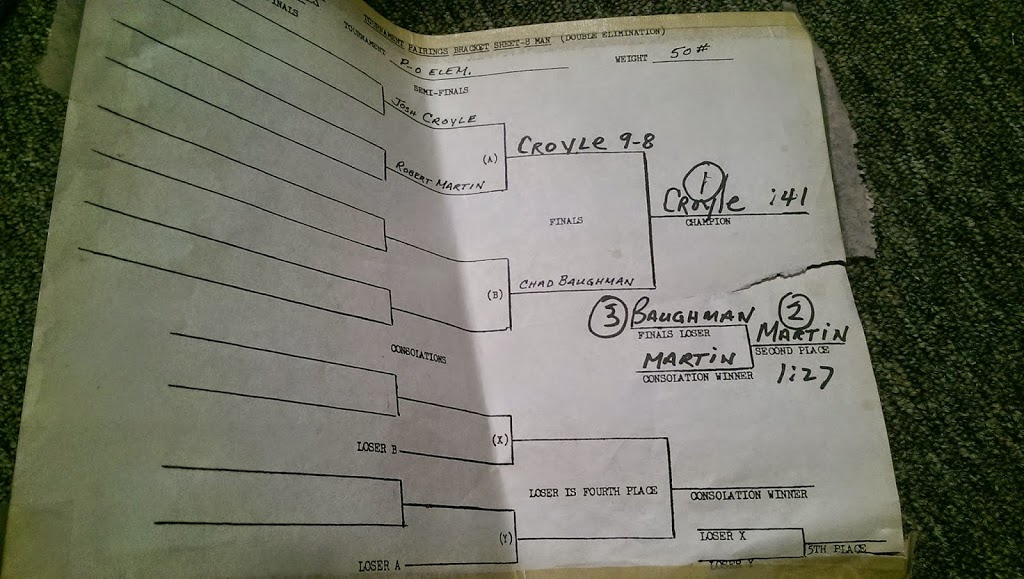 TOURNAMENT PAIRINGS BRACKET SHEET-8 MAN (DOUBLE ELIMINATION)
TOURNAMENT P-O ELEM.
WEIGHT 50#
SEMI-FINALS
JOSH CROYLE
(A)
ROBERT MARTIN
CROYLE 9-8
1
CROYLE :41
CHAMPION
FINALS
(B)
CHAD BAUGHMAN
3 BAUGHMAN
FINALS LOSER
2
MARTIN
SECOND PLACE
MARTIN
CONSOLATION WINNER
1:27
CONSOLATIONS
(X)
LOSER B
LOSER IS FOURTH PLACE
CONSOLATION WINNER
(Y)
LOSER A
LOSER X
5TH PLACE
LOSER Y